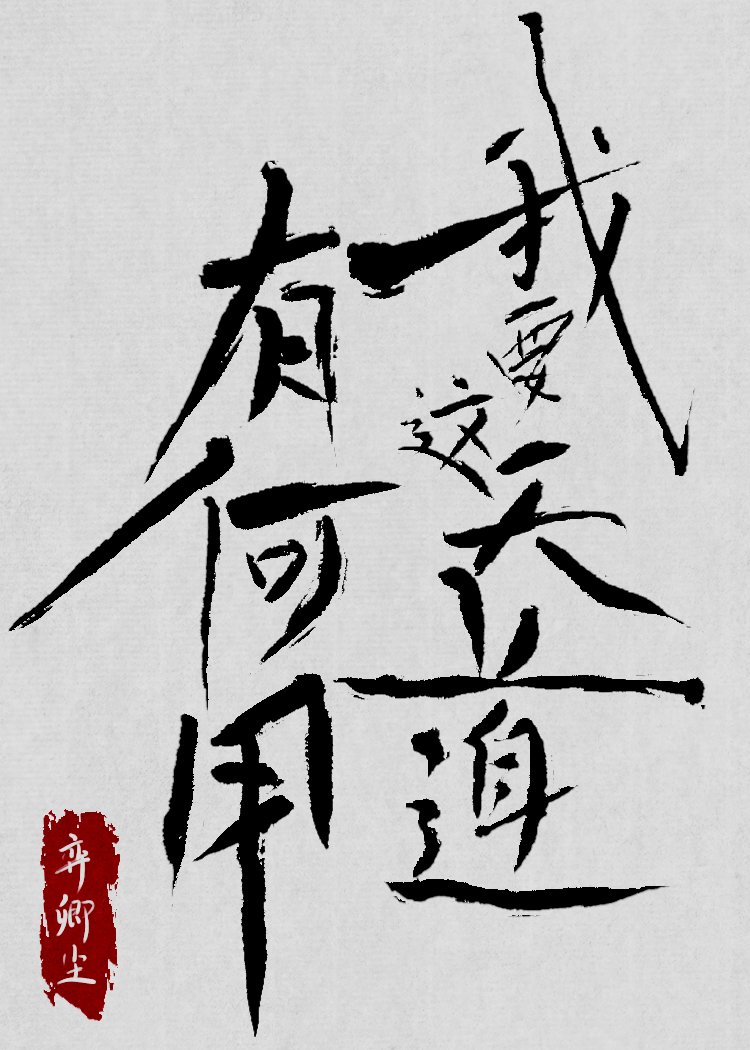 我要这天道
有何用
弈卿尘